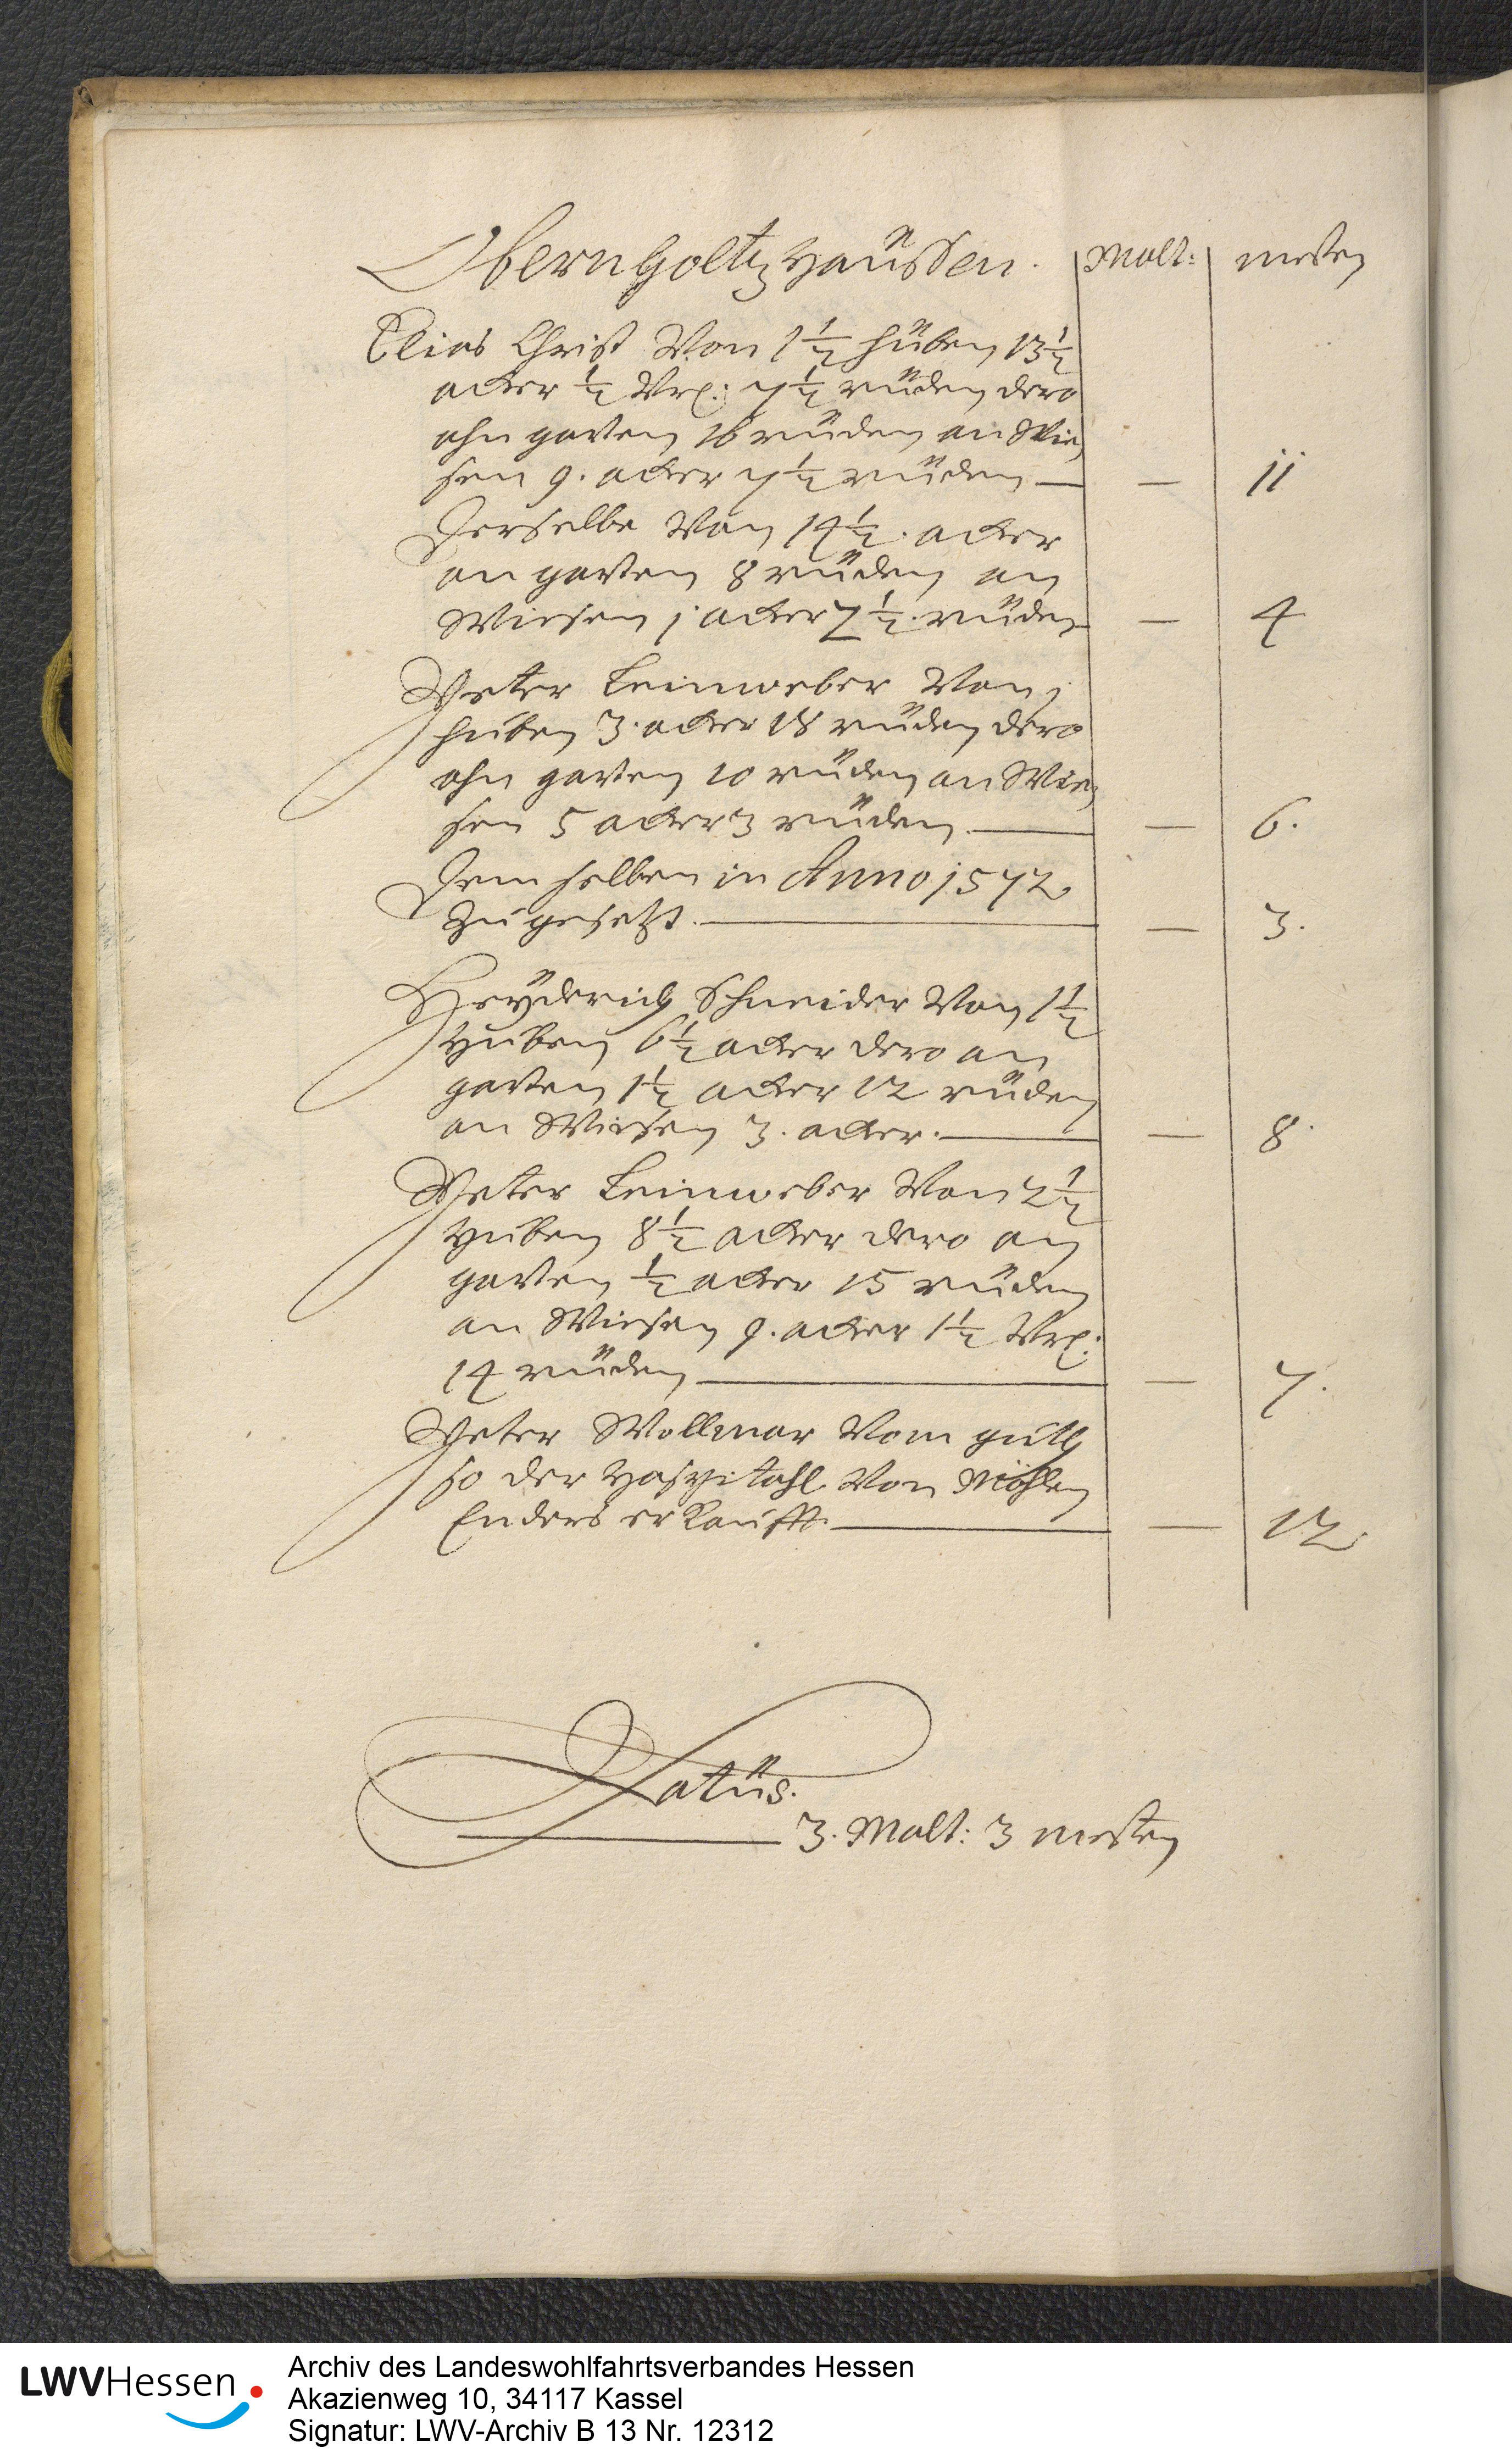 Obernholtzhaüssen. Malt: mesten
Elias Christ Von 1½ hüben 13½
acker ½ Vrt: 7½ rüden dero
ahn garten 16 rüden an Wie,
sen 9. acker 7½ rüden — — 11
Derselbe Von 14½. acker
an garten 8 rüden an
Wiesen 1 acker 7½. rüden — 4
Peter Leinweber Von 1
huben 3. acker 18 rüden dero
ahn garten 10 rüden an Wie,
sen 5 acker 3 rüden. — — 6.
Dem selben in Anno 1572
zugesetzt. — — 3.
Heyderich Schneider Von 1½
Huben 6½ acker dero an
garten 1½ acker 12 rüden
an Wiesen 3. acker. — — 8.
Peter Leinweber Von 2½
Huben 8½ acker dero an
garten ½ acker 15 rüden
an Wiesen 9. acker 1½ Vrt:
14 rüden — — 7.
Peter Vollmar Vom guth
so der Hospitahl Von Möhlen
Enders erkaufft. — — 12.
Latüs.
— 3. Malt: 3 mesten
LWVHessen
Archiv des Landeswohlfahrtsverbandes Hessen
Akazienweg 10, 34117 Kassel
Signatur: LWV-Archiv B 13 Nr. 12312